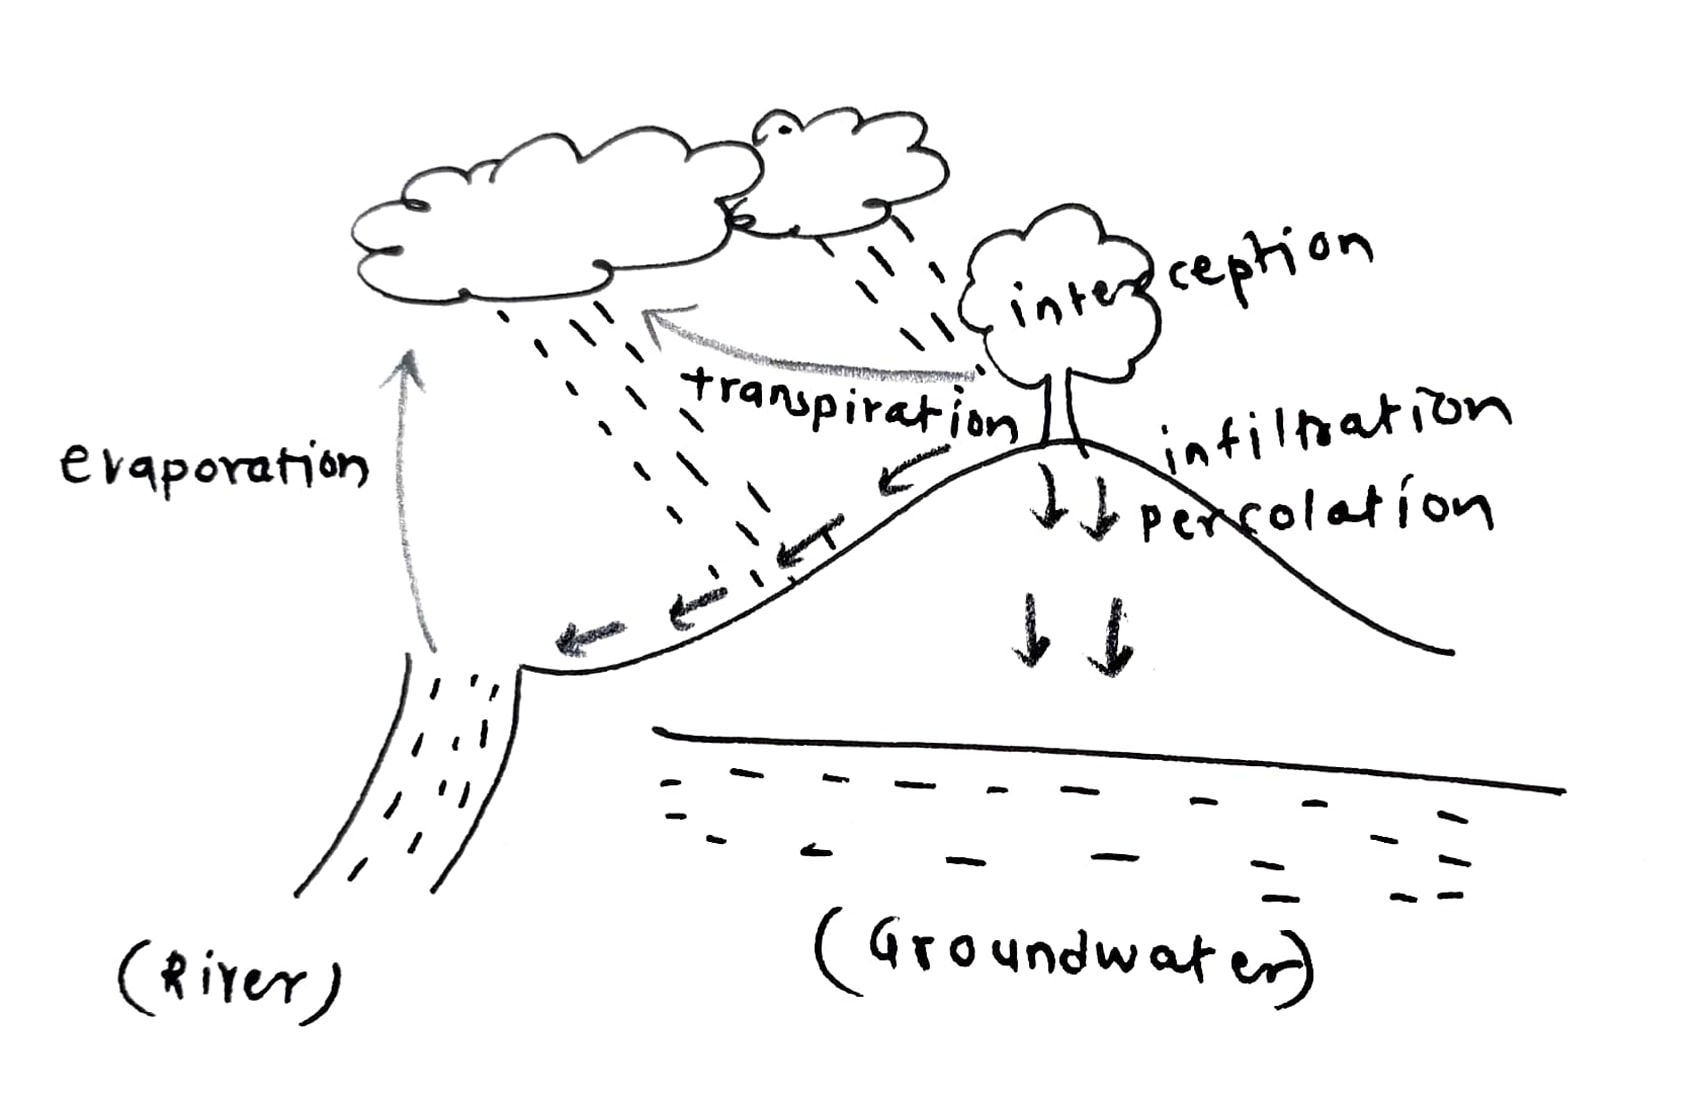 interception
transpiration
evaporation
infiltration
percolation
(River)
(Groundwater)